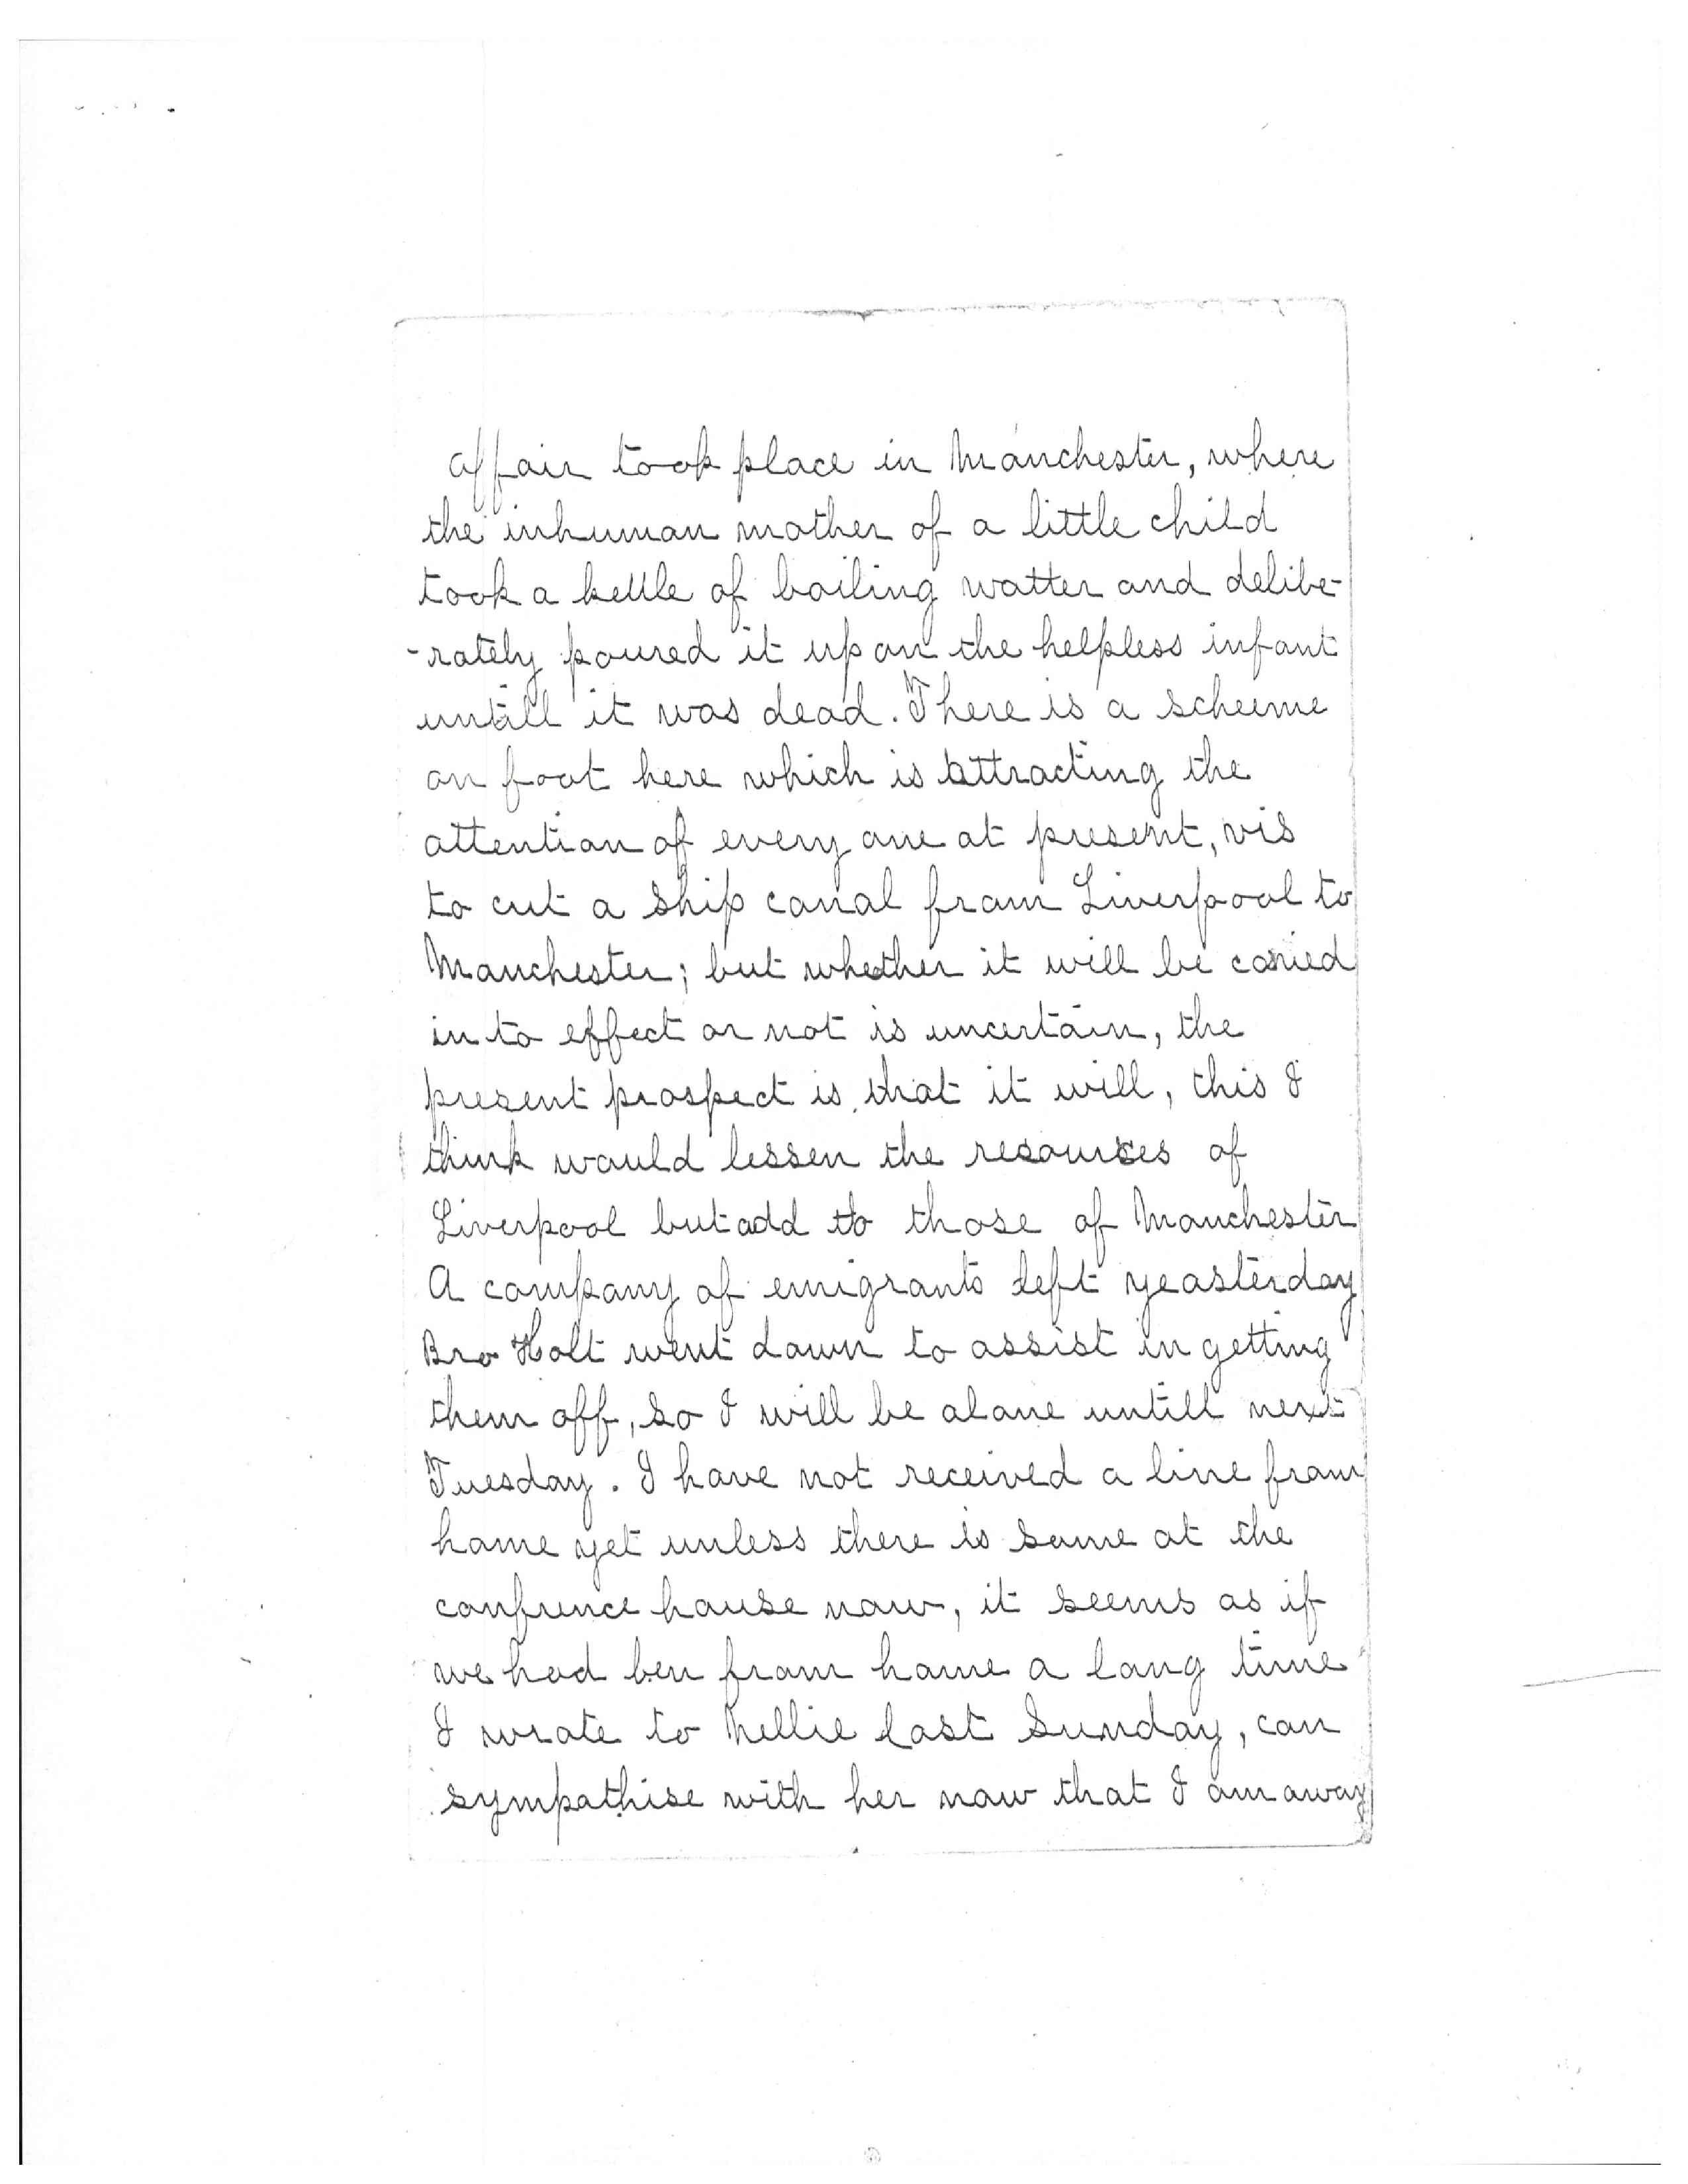 affair took place in Manchester, where
the inhuman mother of a little child
took a kettle of boiling watter and delibe-
-rately poured it upon the helpless infant
untill it was dead. There is a scheeme
on foot here which is attracting the
attention of every one at present, vis
to cut a ship canal from Liverpool to
Manchester; but whether it will be carried
in to effect or not is uncertain, the
present prospect is that it will, this I
think would lessen the resources of
Liverpool but add to those of Manchester
A company of emigrants left yeasterday
Bro Holt went down to assist in getting
them off, so I will be alone untill next
Tuesday. I have not received a line from
home yet unless there is some at the
confrence house now, it seems as if
we had ben from home a long time
I wrote to Nellie last Sunday, can
sympathise with her now that I am away